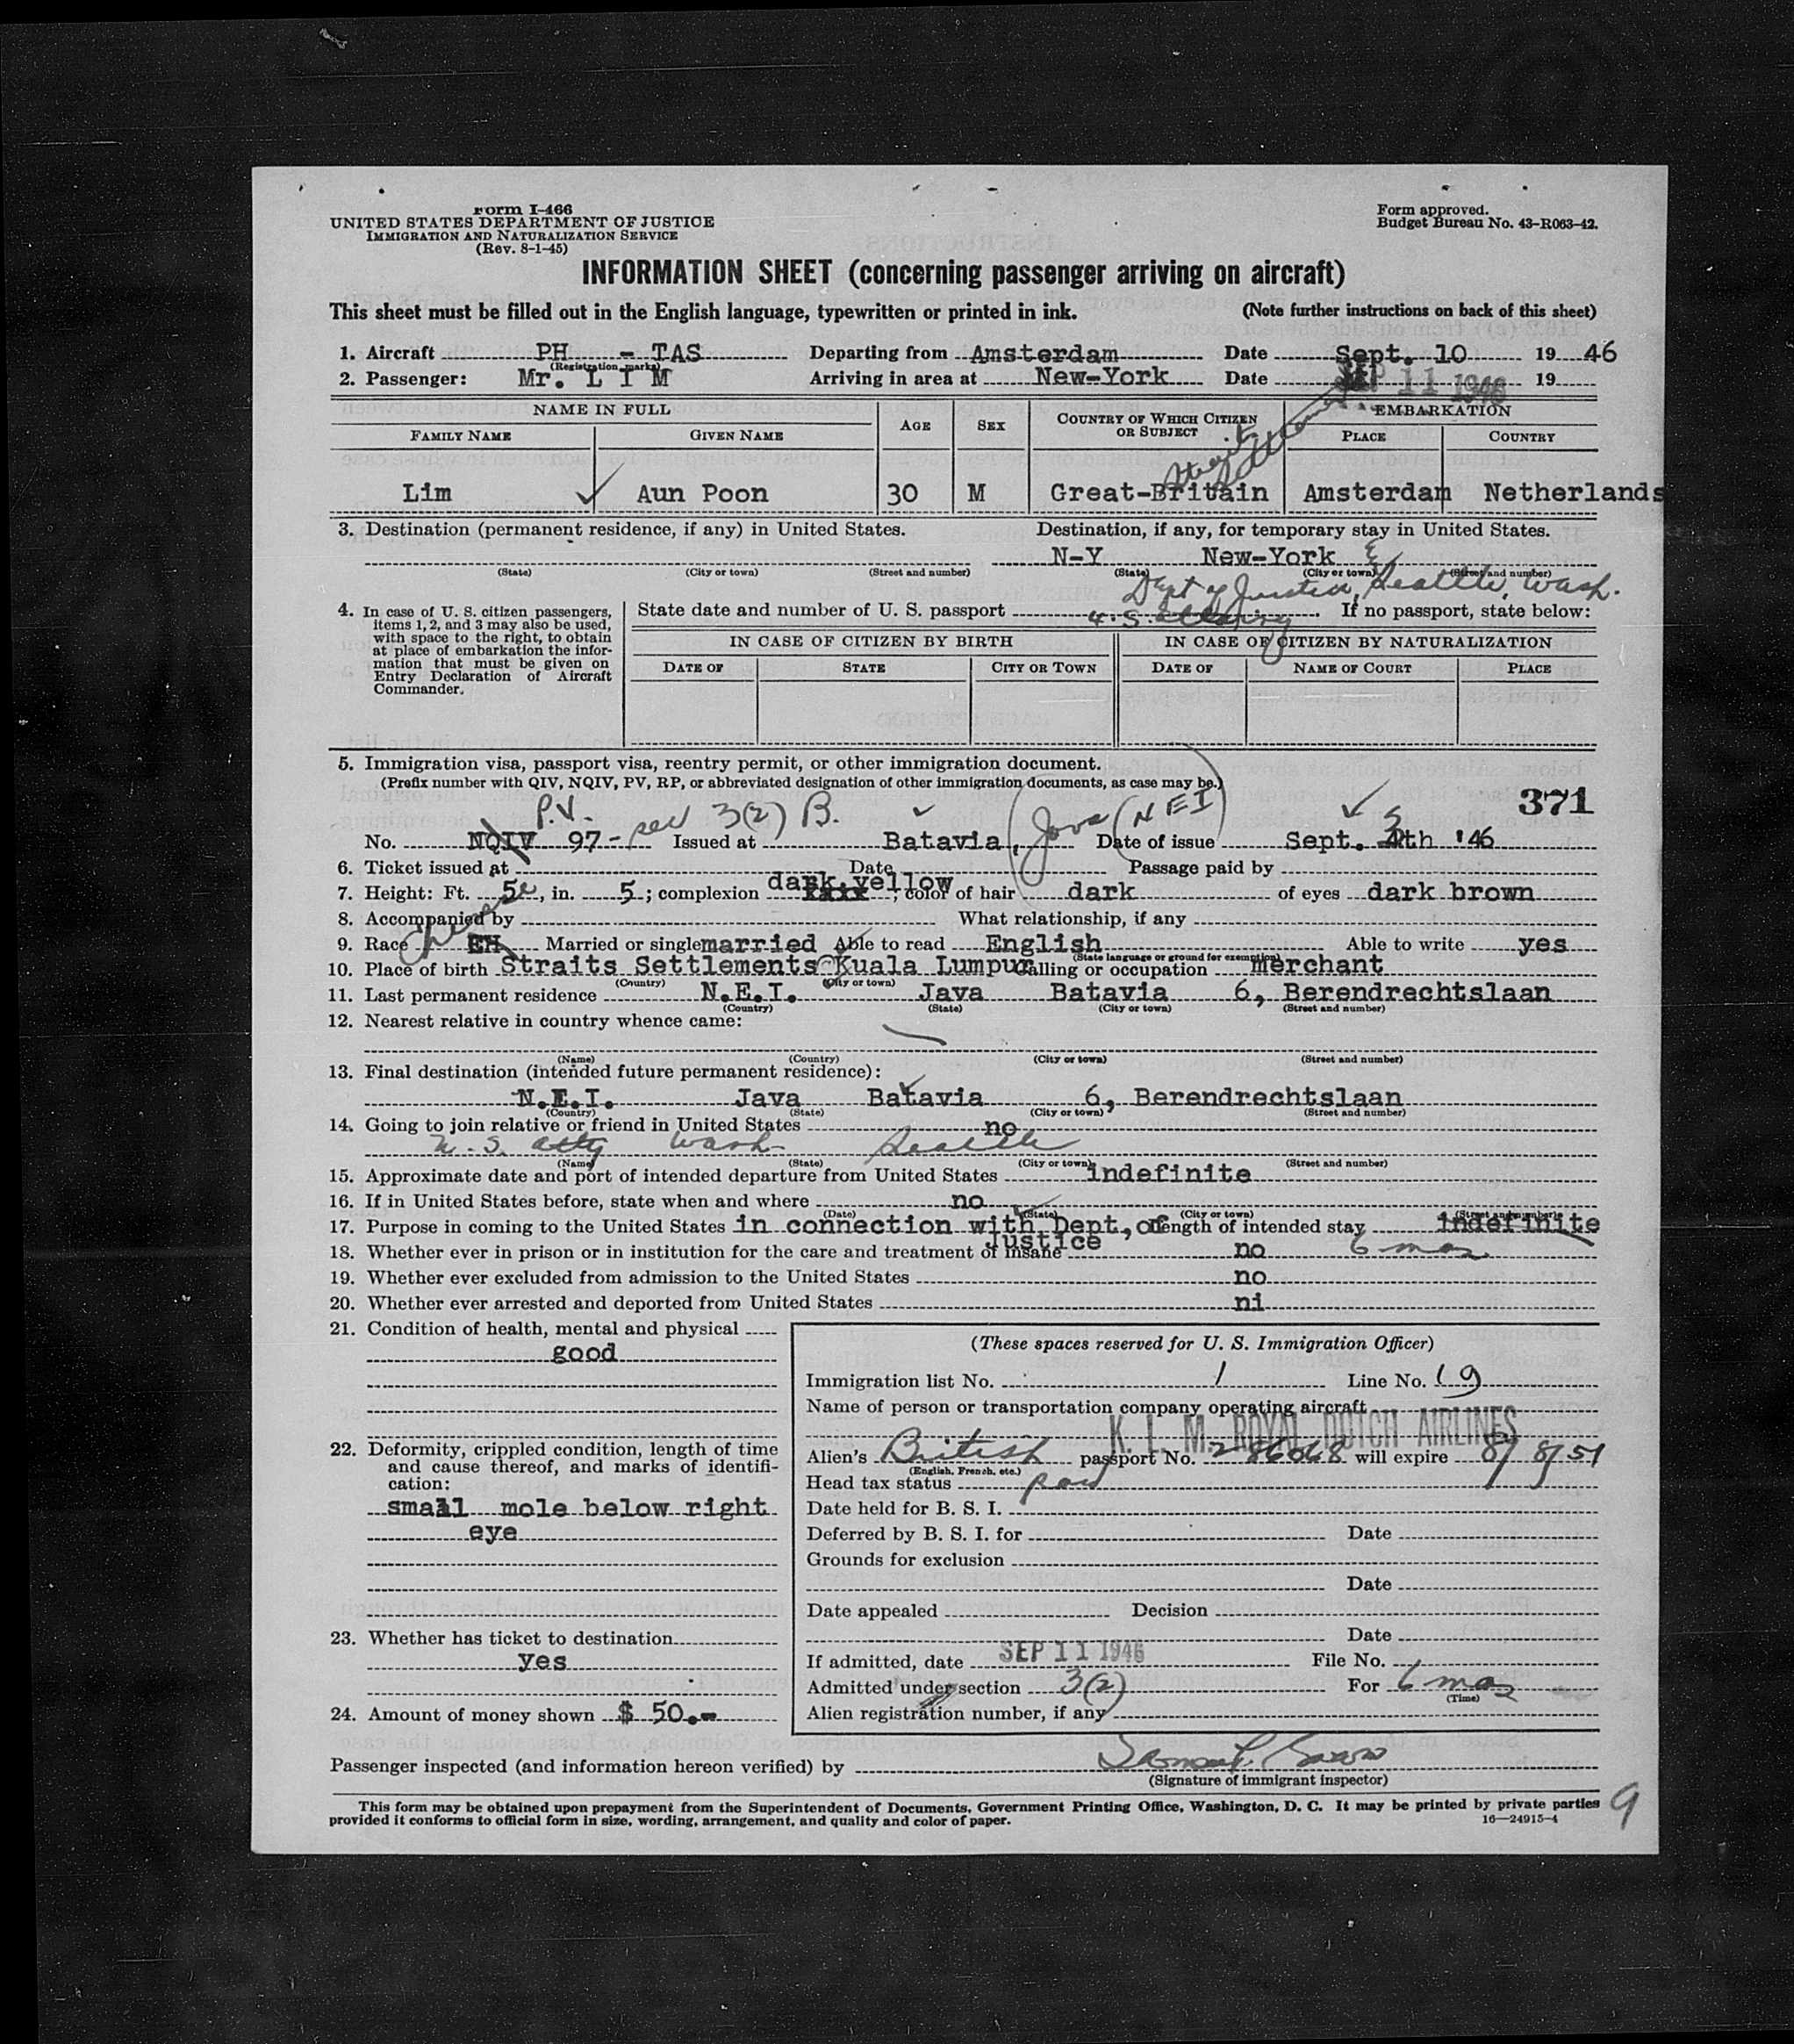 Form I-466
UNITED STATES DEPARTMENT OF JUSTICE
IMMIGRATION AND NATURALIZATION SERVICE
(Rev. 8-1-45)
Form approved.
Budget Bureau No. 43-R063-42.
INFORMATION SHEET (concerning passenger arriving on aircraft)
This sheet must be filled out in the English language, typewritten or printed in ink. (Note further instructions on back of this sheet)
1. Aircraft PH - TAS Departing from Amsterdam Date Sept. 10 1946
(Registration marks)
2. Passenger: Mr. L I M Arriving in area at New-York Date SEP 11 1946 19
NAME IN FULL AGE SEX COUNTRY OF WHICH CITIZEN OR SUBJECT EMBARKATION
FAMILY NAME GIVEN NAME PLACE COUNTRY
Straits Settlements
Lim Aun Poon 30 M Great-Britain Amsterdam Netherlands
3. Destination (permanent residence, if any) in United States. Destination, if any, for temporary stay in United States.
N-Y New-York &
(State) (City or town) (Street and number) (State) (City or town) (Street and number)
Dept of Justice, Seattle, Wash.
4. In case of U. S. citizen passengers, items 1, 2, and 3 may also be used, with space to the right, to obtain at place of embarkation the information that must be given on Entry Declaration of Aircraft Commander.
State date and number of U. S. passport U.S. If no passport, state below:
IN CASE OF CITIZEN BY BIRTH IN CASE OF CITIZEN BY NATURALIZATION
DATE OF STATE CITY OR TOWN DATE OF NAME OF COURT PLACE
5. Immigration visa, passport visa, reentry permit, or other immigration document.
(Prefix number with QIV, NQIV, PV, RP, or abbreviated designation of other immigration documents, as case may be.)
371
P.V. sec 3(2) B. Java (NEI)
No. NQIV 97- Issued at Batavia, Date of issue Sept. 5th '46
6. Ticket issued at Date Passage paid by
7. Height: Ft. 5, in. 5; complexion dark yellow, color of hair dark of eyes dark brown
8. Accompanied by What relationship, if any
9. Race EH Chinese Married or single married Able to read English Able to write yes
(State language or ground for exemption)
10. Place of birth Straits Settlements Kuala Lumpur Calling or occupation merchant
(Country) (City or town)
11. Last permanent residence N.E.I. Java Batavia 6, Berendrechtslaan
(Country) (State) (City or town) (Street and number)
12. Nearest relative in country whence came:
(Name) (Country) (City or town) (Street and number)
13. Final destination (intended future permanent residence):
N.E.I. Java Batavia 6, Berendrechtslaan
(Country) (State) (City or town) (Street and number)
14. Going to join relative or friend in United States no
U.S. atty Wash Seattle
(Name) (State) (City or town) (Street and number)
15. Approximate date and port of intended departure from United States indefinite
16. If in United States before, state when and where no
(Date) (State) (City or town) (Street and number)
17. Purpose in coming to the United States in connection with Dept, of Justice Length of intended stay indefinite 6 mos
18. Whether ever in prison or in institution for the care and treatment of insane no
19. Whether ever excluded from admission to the United States no
20. Whether ever arrested and deported from United States ni
21. Condition of health, mental and physical
good
22. Deformity, crippled condition, length of time and cause thereof, and marks of identification:
small mole below right
eye
23. Whether has ticket to destination
yes
24. Amount of money shown $ 50.-
(These spaces reserved for U. S. Immigration Officer)
Immigration list No. 1 Line No. 19
Name of person or transportation company operating aircraft
K. L. M. ROYAL DUTCH AIRLINES
Alien's British passport No. 286068 will expire 8/8/51
(English, French, etc.)
Head tax status paid
Date held for B. S. I.
Deferred by B. S. I. for Date
Grounds for exclusion
Date
Date appealed Decision
Date
If admitted, date SEP 11 1946 File No.
Admitted under section 3(2) For 6 mos
(Time)
Alien registration number, if any
Passenger inspected (and information hereon verified) by
(Signature of immigrant inspector)
This form may be obtained upon prepayment from the Superintendent of Documents, Government Printing Office, Washington, D. C. It may be printed by private parties
provided it conforms to official form in size, wording, arrangement, and quality and color of paper. 16—24915-4
9